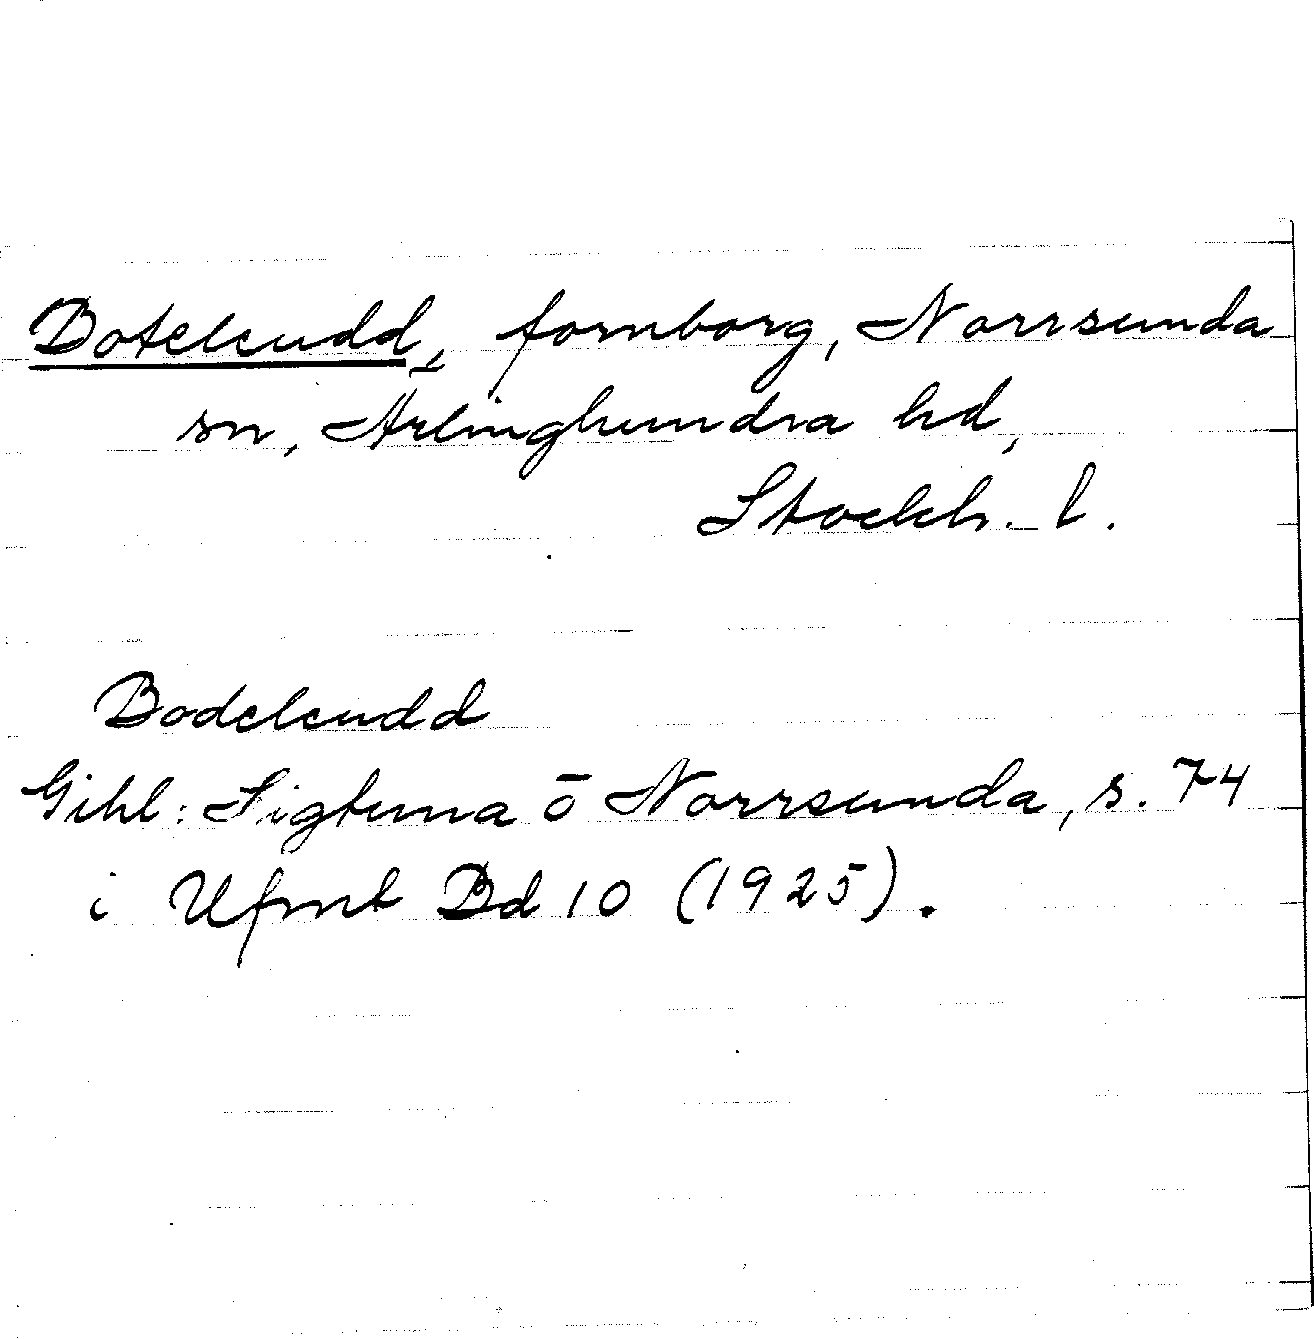 Boteleudd, fornborg, Norrsunda
sn, Ärlinghundra hd,
Stockh. l.
Bodeleudd
Gihl: Sigtuna ō Norrsunda, s. 74
i Ufmt Bd 10 (1925).